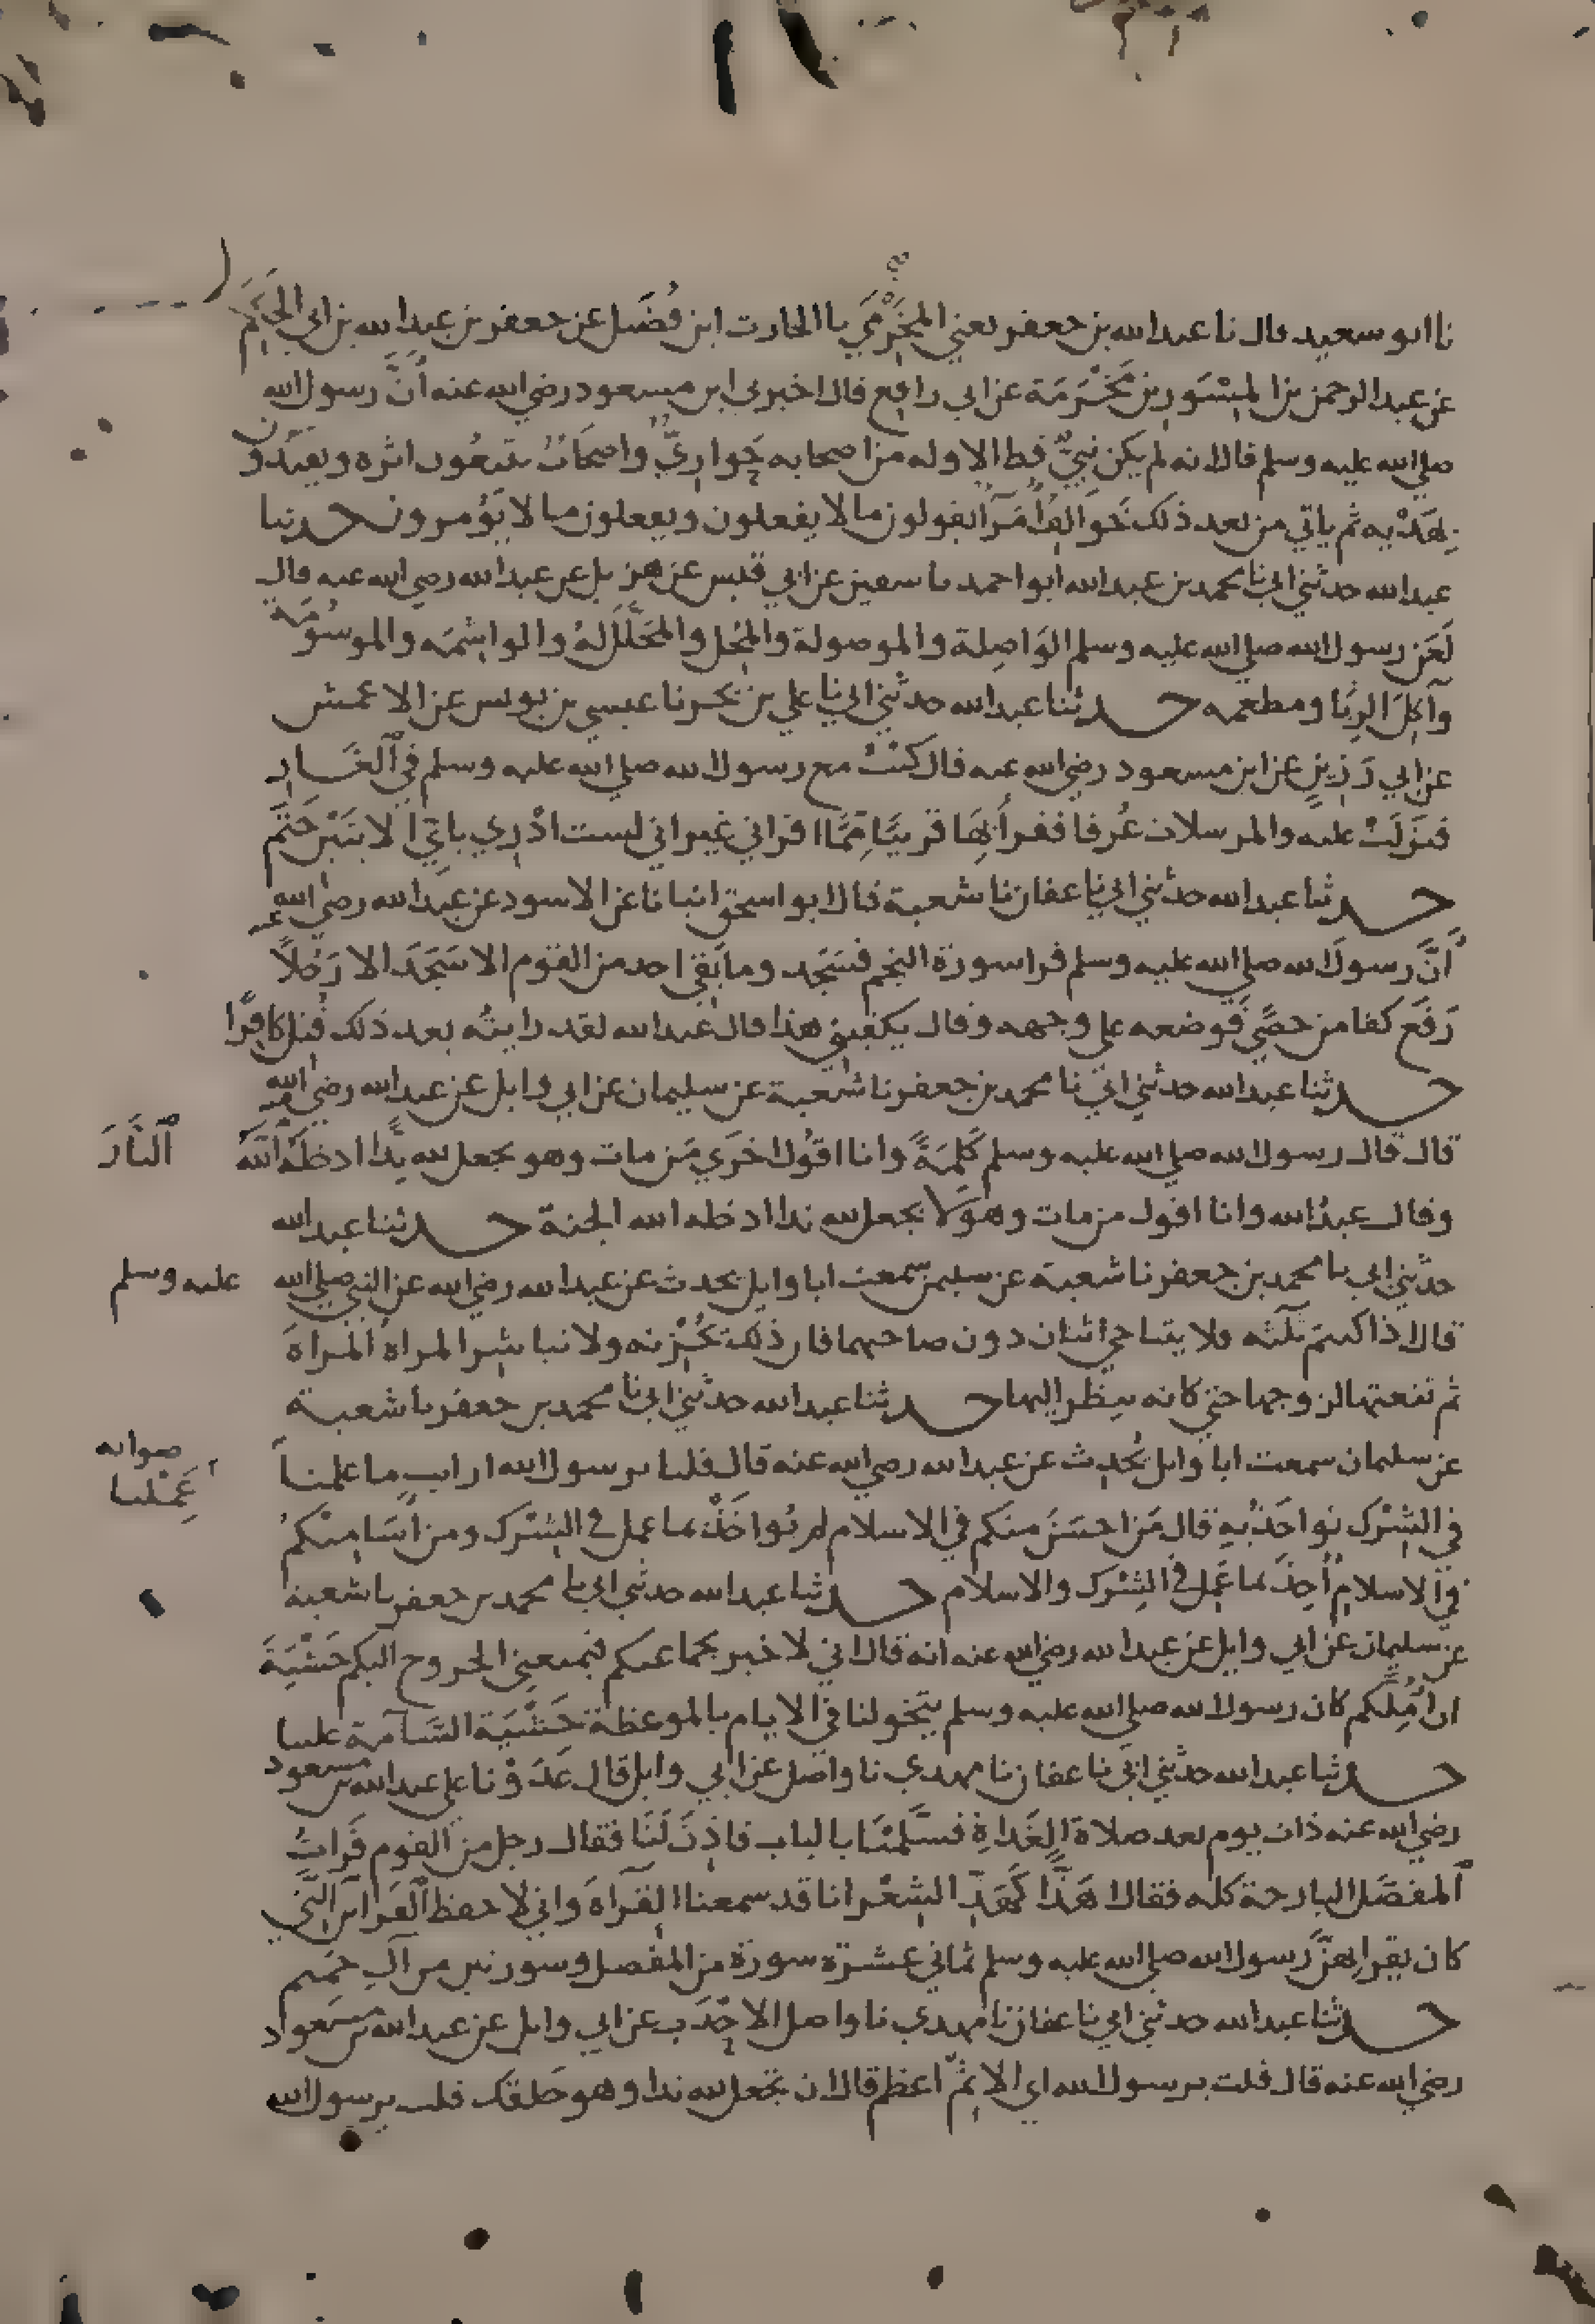 نا ابو سعيد قال نا عبد الله بن جعفر يعني المَخْرَمِي نا الحارث ابن فُضَيل عن جعفر بن عبد الله بن ابي الحَكَم
عن عبد الرحمن بن المِسْوَرِ بن مَخْرَمَة عن ابي رافع قال اخبرني ابن مسعود رضي الله عنه أنَّ رسول الله
صلى الله عليه وسلم قال انه لم يكن نبيٌّ قط الا وله من اصحابه حَواريٌّ واصحابٌ يتبعُون اثره ويقتدون
بِهَدْيه ثم ياتي من بعد ذلك خَوالفُ أُمَرَآ يقولون ما لا يفعلون ويفعلون ما لا يُؤمرون حدثنا
عبد الله حدثني ابي نا محمد بن عبد الله ابو احمد نا سفين عن ابي قيس عن هزيل عن عبد الله رضي الله عنه قال
لَعَن رسول الله صلى الله عليه وسلم الوَاصِلة والموصولة والمُحِل والمُحَلَّلَ لهُ والواشِمَه والموسُومَة
وآكِلَ الرِبَا ومطعمه حدثنا عبد الله حدثني ابي نا علي بن بَحر نا عيسى بن يونس عن الاعمش
عن ابي رَزِينٍ عن ابن مسعود رضي الله عنه قال كنتُ مع رسول الله صلى الله عليه وسلم في الغَارِ
فنزلَتْ عليه والمرسلات عُرفا فقرأتُهَا قريبًا مِمَّا اقراني غير اني لست ادْرِي باَيِّ الايتَيْن خَتَمَ
حدثنا عبد الله حدثني ابي نا عفان نا شعبة قال ابو اسحق انبانا عن الاسود عن عبد الله رضي الله عنه
أنَّ رسولَ الله صلى الله عليه وسلم قرا سورة النجم فسَجَد وما بَقي احد من القوم الا سَجَدَ الا رَجُلاً
رَفَع كفا من حصًى فَوضعه على وجهه وقال يكفيني هذا قال عبد الله لقد رايتُه بعد ذلك قُتل كافِرًا
حدثنا عبد الله حدثني ابي نا محمد بن جعفر نا شعبة عن سليمان عن ابي وايل عن عبد الله رضي الله عنه
قال قال رسول الله صلى الله عليه وسلم كَلِمَةً وانا اقُول اخرَي مَن مات وهو يجعل لله نِدًّا ادخلَهُ اللهُ النَّارَ
وقال عبدُ الله وانا اقول من مات وهوَ لا يجعل لله ندا ادخله الله الجنة حدثنا عبد الله
حدثني ابي نا محمد بن جعفر نا شعبة عن سليمن سمعت ابا وايل يحدث عن عبد الله رضي الله عن النبي صلى الله عليه وسلم
قال اذا كنتم ثَلَثَه فلا يتناجى اثنان دون صاحبهما فان ذلك يُحْزنه ولا تباشر المراةُ المراةَ
ثم تنعتها لزوجها حتى كانه ينظر اليها حدثنا عبد الله حدثني ابي نا محمد بن جعفر نا شعبة
عن سليمان سمعت ابا وايل يُحدِث عن عبد الله رضي الله عنه قال قلنا يرسول الله ارايت ما علمنا
صوابه
عَمِلنا
في الشِرْك نواخَذ بِهِ قال مَن احسَنَ منكم في الاسلام لم يُواخَذْ بما عمل في الشِرْك ومن اَسَا مِنْكم
في الاسلام اُخِذَ بما عَمِلَ في الشِرْك والاسلام حدثنا عبد الله حدثني ابي نا محمد بن جعفر نا شعبة
عن سليمان عن ابي وايل عن عبد الله رضي الله عنه انه قال اني لاخبر بجماعتكم فيمنعني الخروج اليكم خَشْيَةَ
ان اُمِلَّكم كان رسول الله صلى الله عليه وسلم يتخولنا في الايام بالموعظة خَشْيَة السَآمة علينا
حدثنا عبد الله حدثني ابي نا عفان نا مهدي نا واصل عن ابي وايل قال غَدَوْنا على عبد الله بن مسعود
رضي الله عنه ذات يوم بعد صلاة الغَداةِ فسَلَّمْنَا بالباب فاذِنَ لَنَا فقال رجل من القوم قَراتُ
المفصَّل البارحة كله فقال هَذًّا كَهَذِّ الشِعْر انا قد سمعنا القرآةَ واني لاحفظ القرآين التي
كان يقرا بهنَّ رسول الله صلى الله عليه وسلم ثماني عشرة سورة من المفصل وسورتين من آلِ حم
حدثنا عبد الله حدثني ابي نا عفان نا مهدي نا واصل الاحْدَب عن ابي وايل عن عبد الله بن مسعود
رضي الله عنه قال قلت يرسول الله اي الاِثْمِ اعظم قال ان تجعل لله ندا وهو خلقك قلت يرسول الله